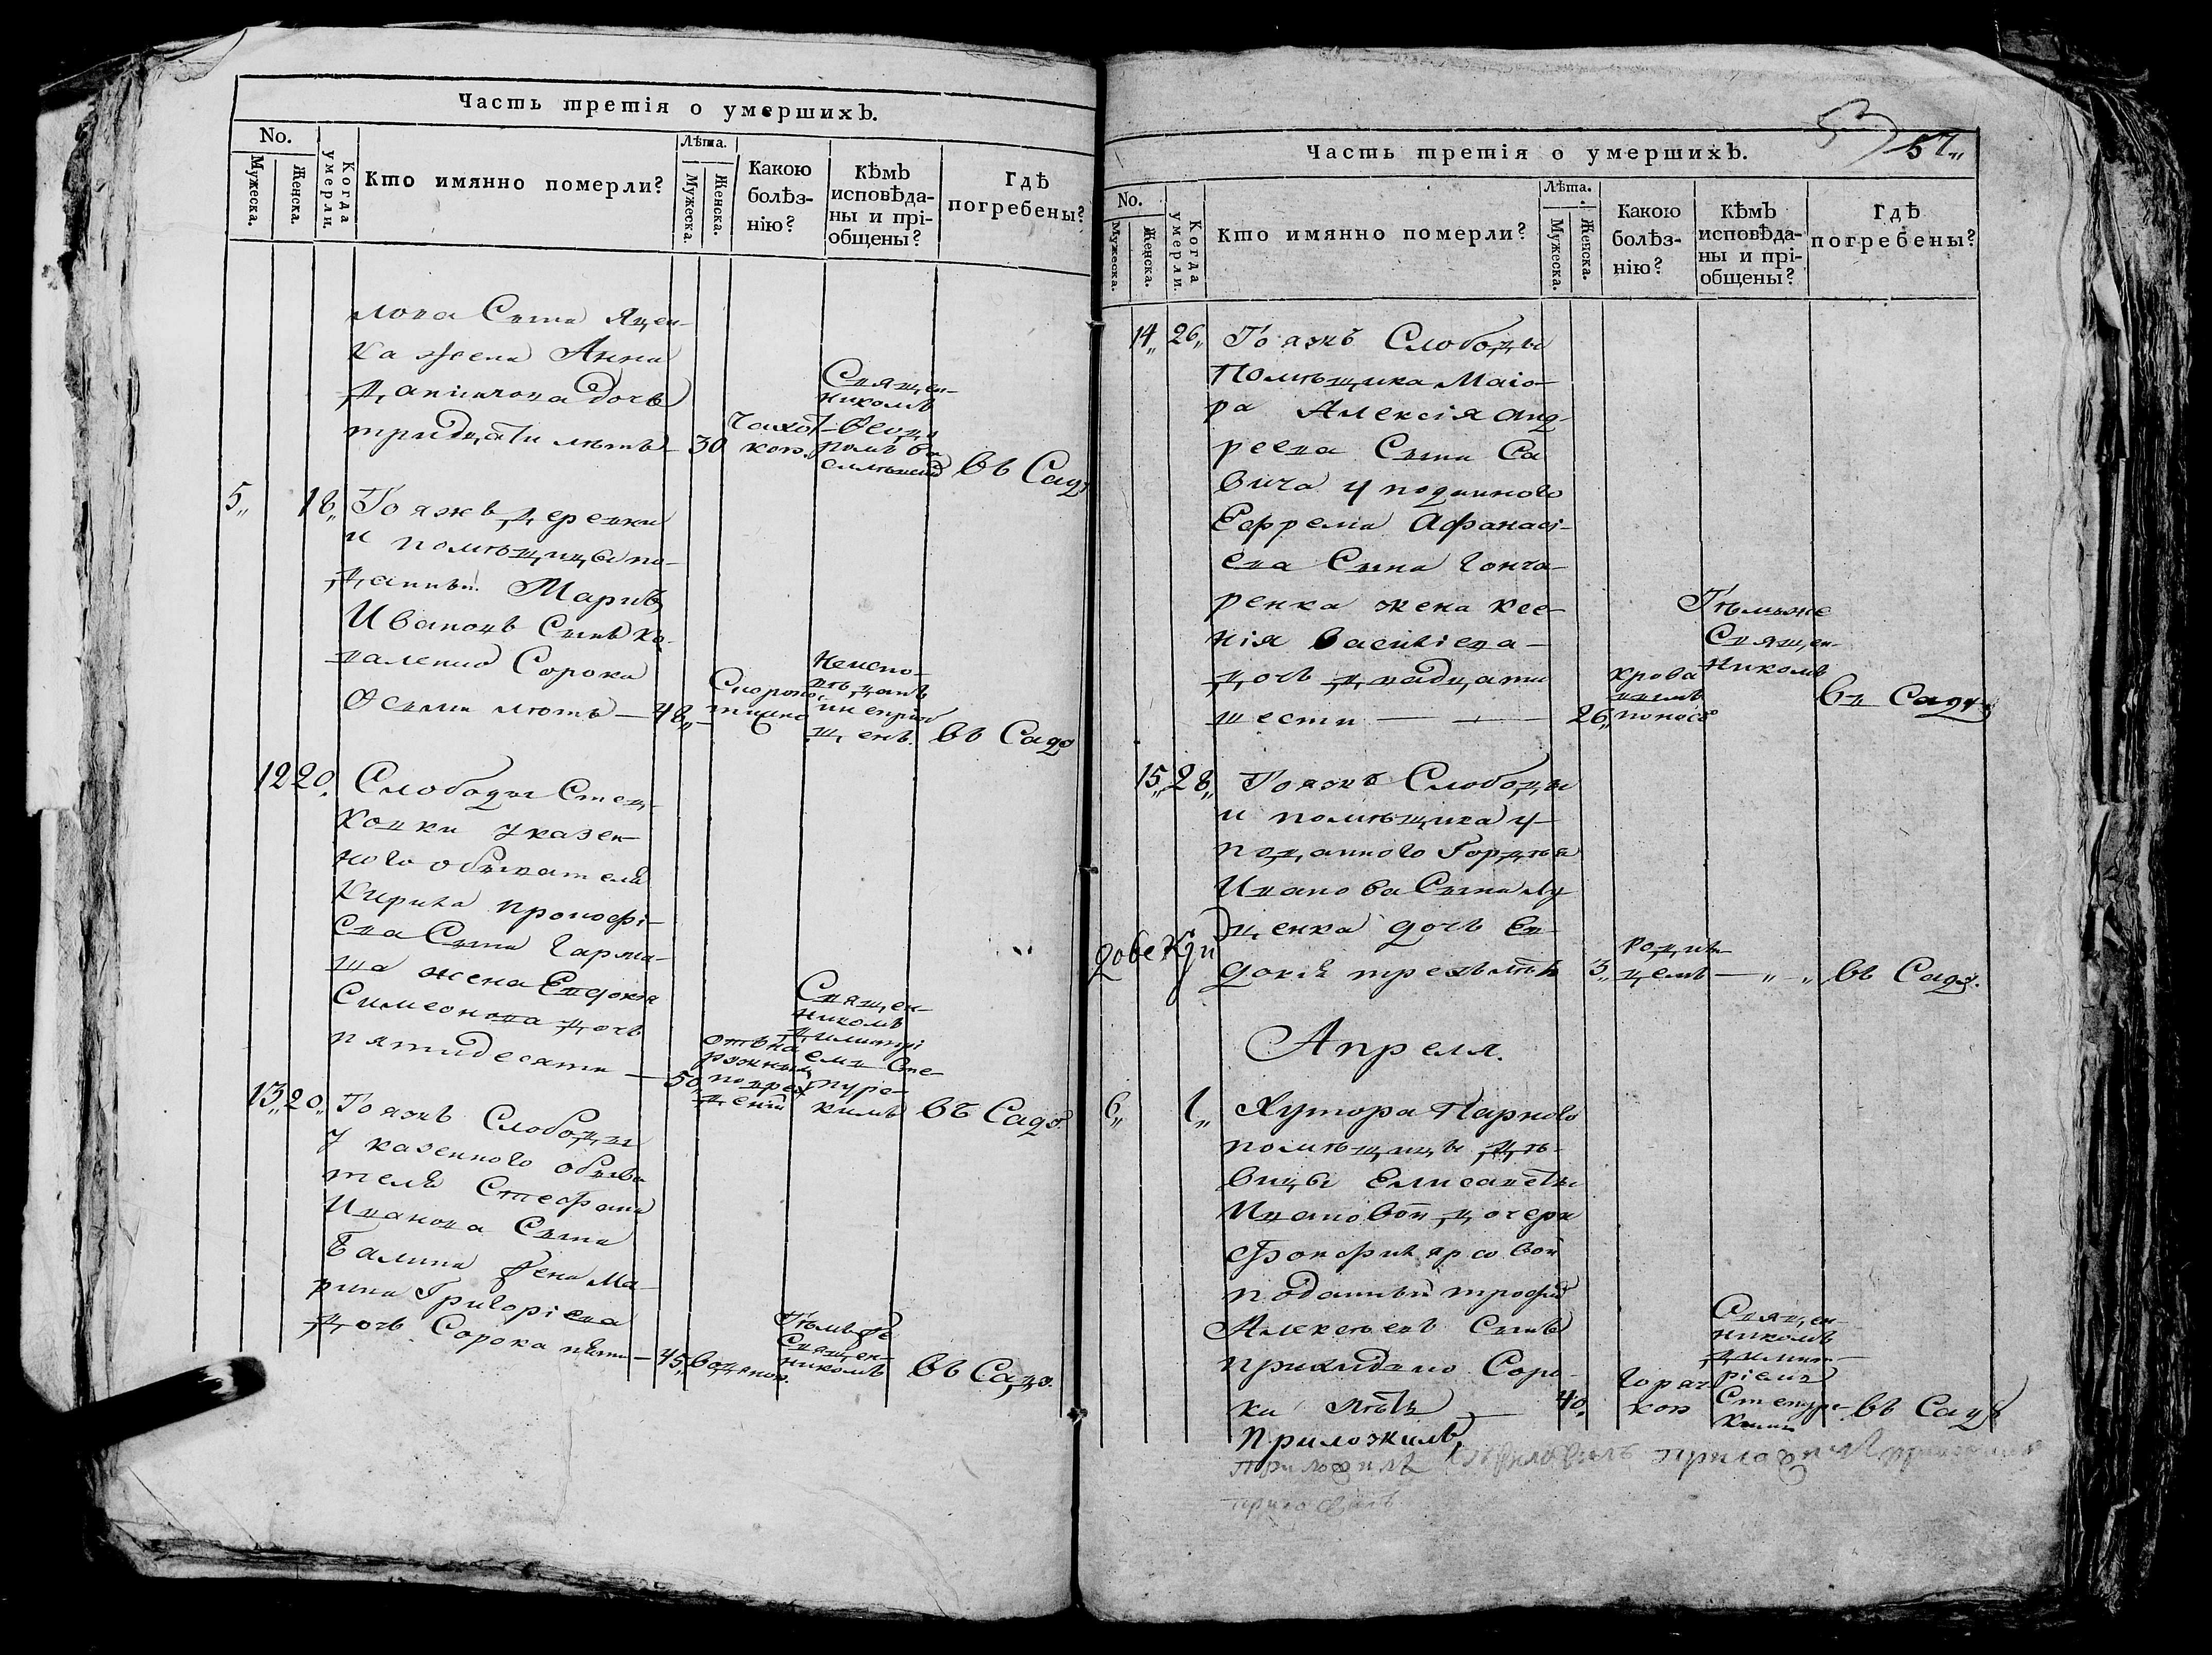 Часть третія о умершихъ.
No.
Мужеска.
Женска.
Когда умерли.
Кто имянно померли?
Лѣта.
Мужеска.
Женска.
Какою болѣз-
нію?
кѣмъ
исповѣда-
ны и прі-
общены?
Гдѣ
погребены?
лова Сына Яцен-
ка жена Анна
Даніилова дочь
тридцати лѣтъ - 30
Чахот
кою.
Свящ,ен-
никомъ
въ Саду
5,, 18,, Тояжъ деревни
и помѣщицы по-
данный Марко
Ивановъ Сынъ Ко-
валенко Сорока
Осьми лѣтъ — 48,,
Скоропо-
тижно
Неиспо-
вѣданъ
и неприоб
щенъ.
въ Саду
12 20, Слободы Стец-
ковки указен-
ного обывателя
Кирила Прокофі-
ева Сына Гарма-
ша жена Евдокія
Симеонова дочь
пятидесяти — 50,,
Свящ,ен-
никомъ
Димитрі
емъ Сте-
пурс-
кимъ
въ Саду.
13,, 20,, Тояжъ Слободы
у казенного обыва
теля Стефана
Иванова Сына
Балина жена Ма-
рина Григоріева
дочь Сорока пяти — 45,,
водяною.
Тѣмъ же
Священ-
никомъ
въ Саду.
57,,
Часть третія о умершихъ.
No.
Мужеска.
Женска.
Когда умерли.
Кто имянно померли?
Лѣта.
Мужеска.
Женска.
Какою
болѣз-
нію?
кѣмъ
исповѣда-
ны и прі-
общены?
Гдѣ
погребены?
14,, 26,, Тояжъ Слободы
Помѣщика Маіо-
ра Алексія Анд-
реева Сына Са
вича уподанного
Ефрема Афанасі-
ева Сына Гонча-
ренка жена Ксе-
нія Василіева -
дочь двадцати
шести — 26,,
крова
вымъ
поносо
Тѣмъже
Священ-
никомъ
въ Саду
15,, 28,, Тояжъ Слободы
и помѣщика у-
поданного Гордѣя
Иванова Сына Лу
ценка дочь Ев-
докія трехъ лѣтъ 3,,
родим-
цемъ — ,, - ,, въ Саду.
Апреля.
6,, 1,, Хутора Парного
помѣщицы дѣ-
вицы Елисаветы
Ивановой дочери
поданный трофим
Алексѣевъ Сынъ
Соро-
ка лѣтъ — 40,,
горяч
кою
Священ-
никомъ
Димит-
ріемъ
Степурс-
кимъ
въ Саду
Приложилъ